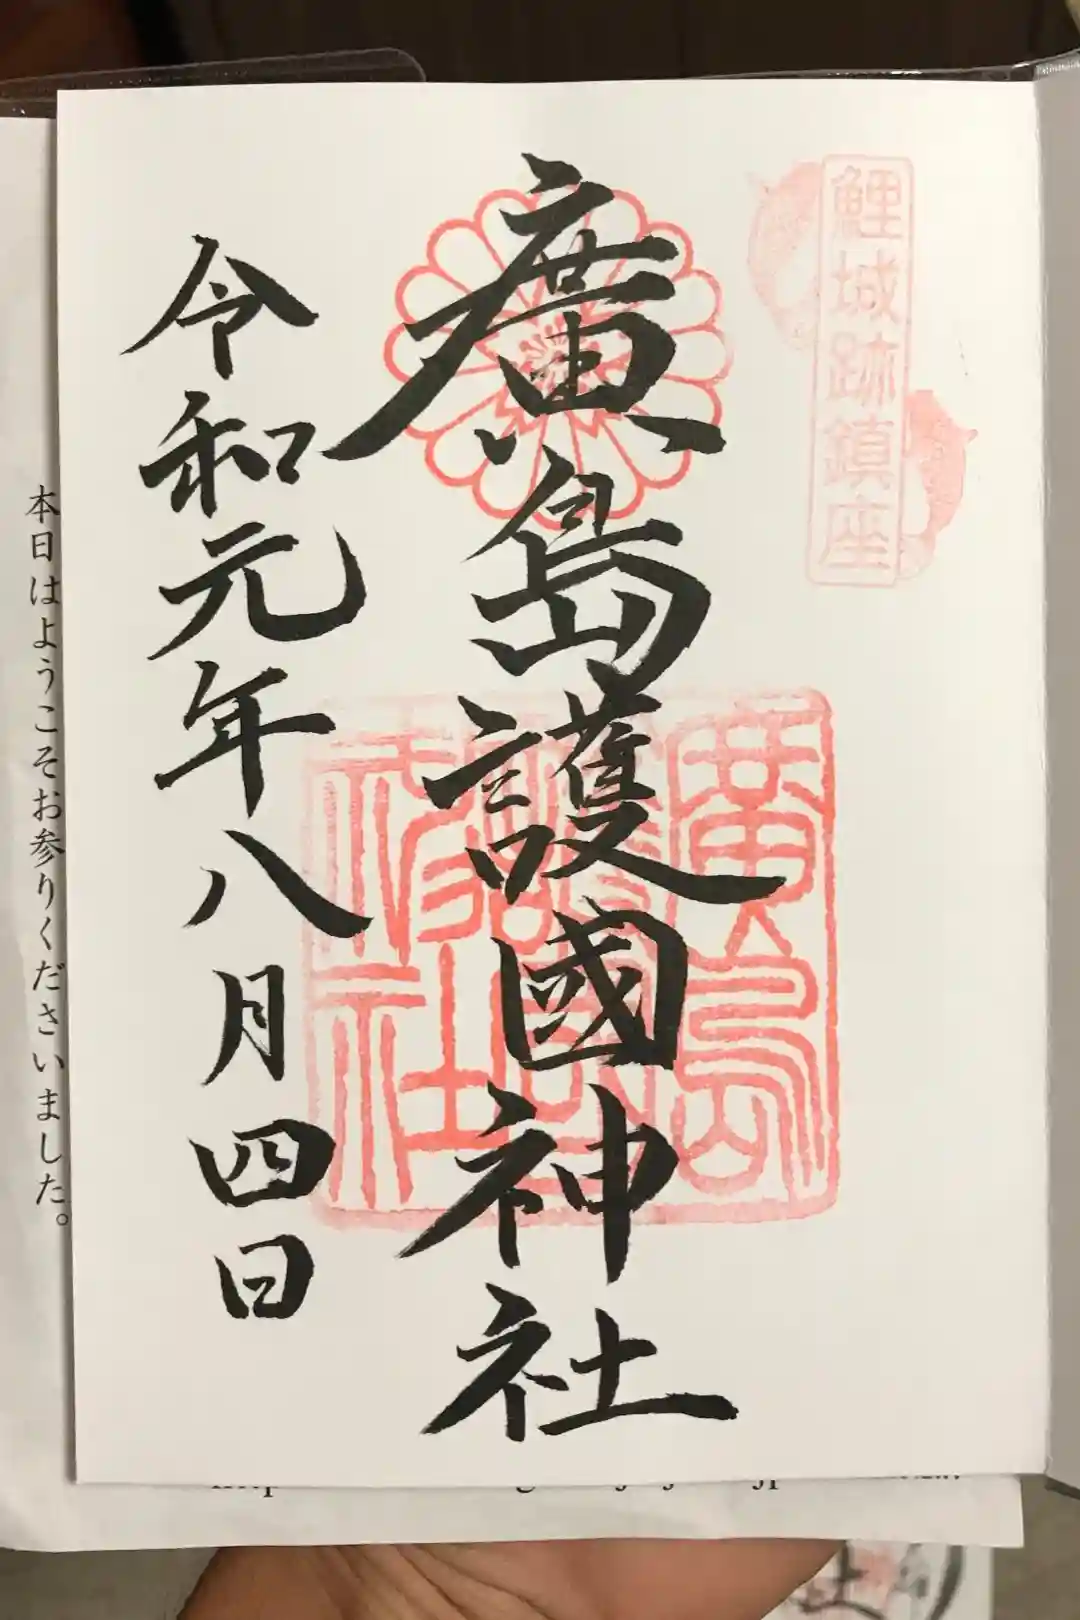 鯉城跡鎮座
廣島護國神社
令和元年八月四日
廣島
護國
神社
本日はようこそお参りくださいました。